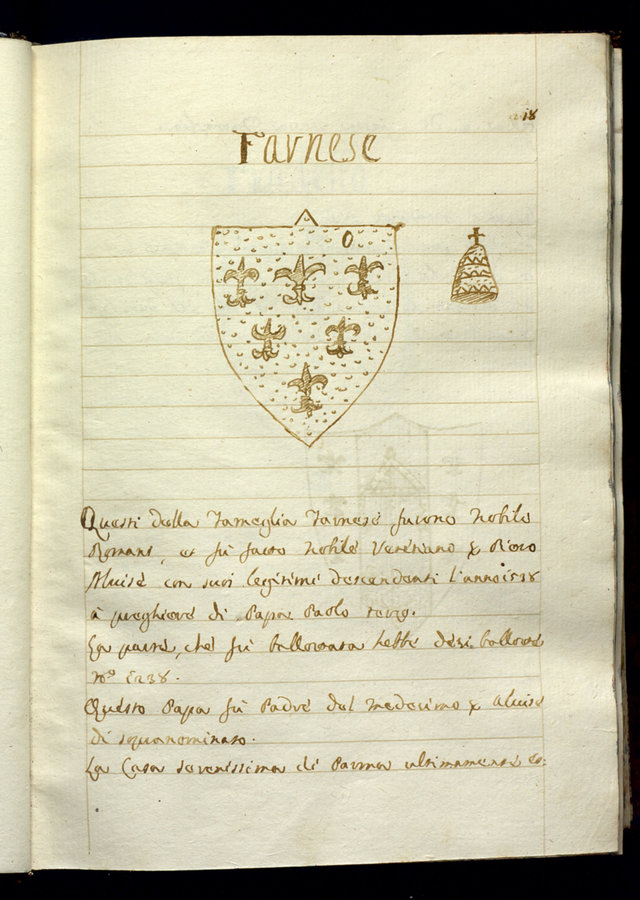 18
Farnese
O
Questi della Fameglia Farnese furono Nobili
Romani, et fù fatto Nobile Venetiano
Aluise con suoi legitimi descendenti l'anno 1538
à preghiere di Papa Paolo terzo.
La parte, che fù ballottata hebbe ballotte
nº
Questo Papa fù Padre del medesimo Aluise
di sopranominato.
La Casa serenissima di Parma ultimamente es: